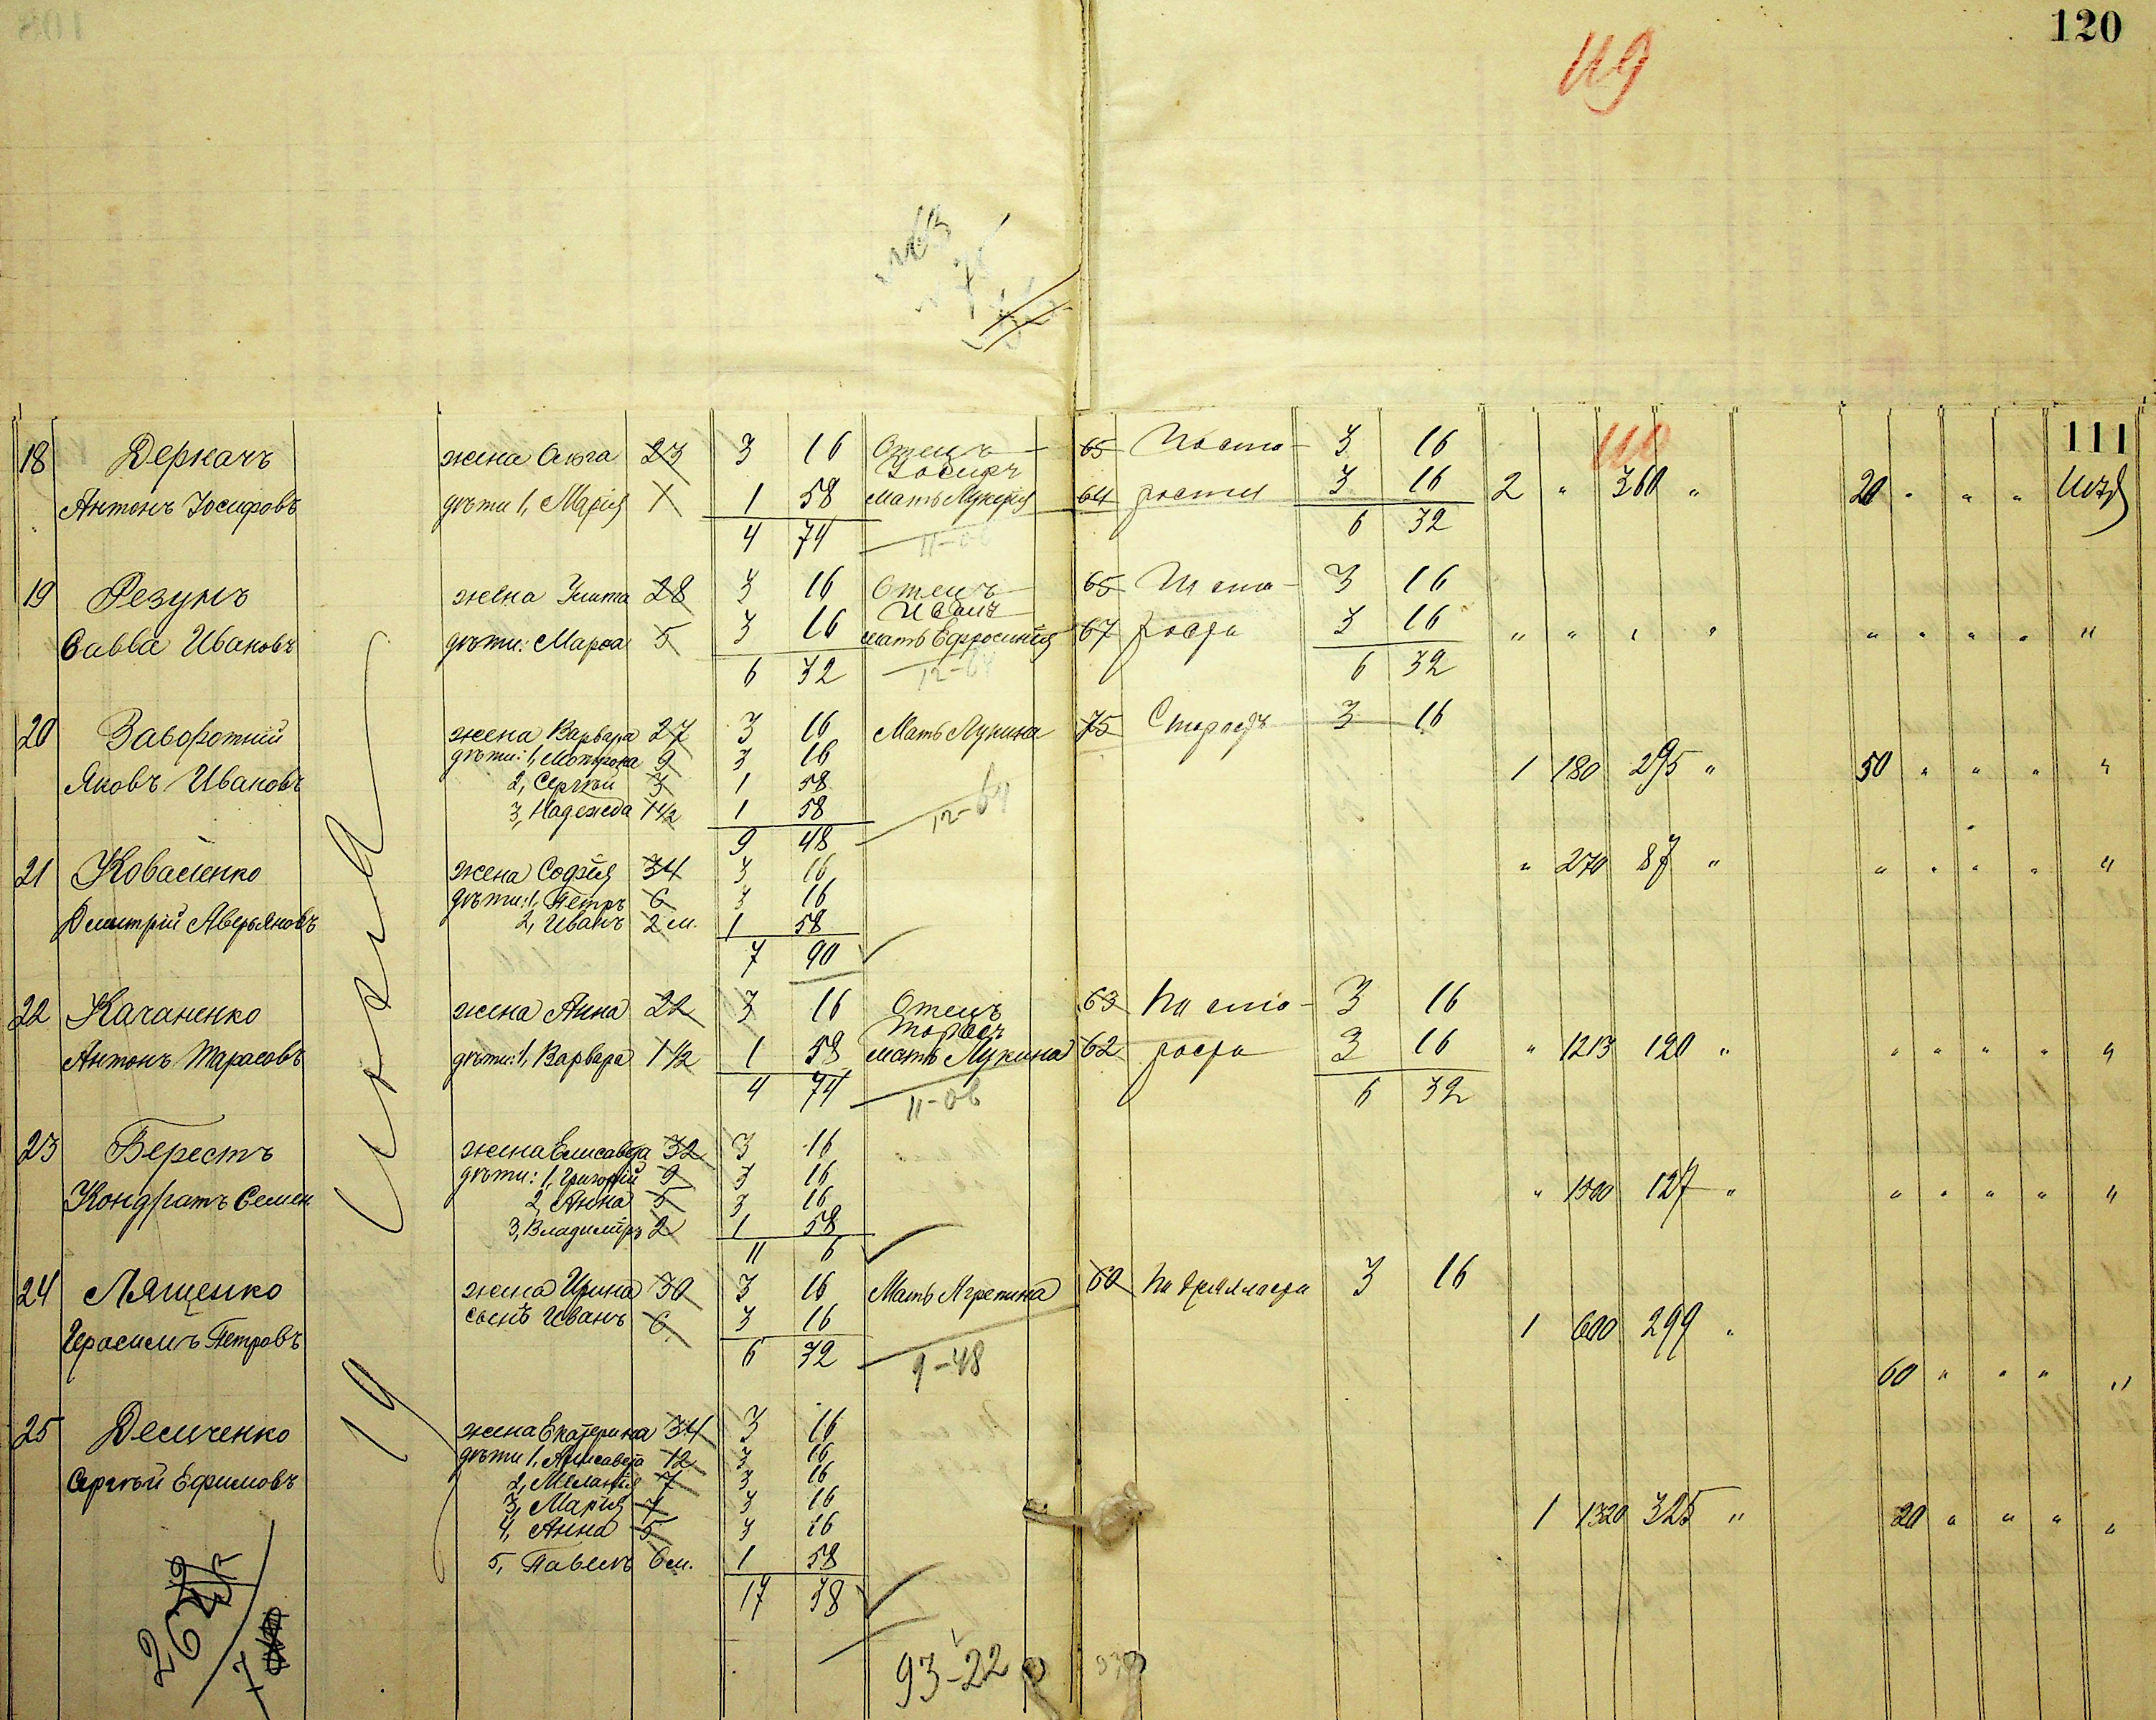 120
119
110
111
18 Деркачъ жена Ольга 23 3 16 Отецъ 65 По ста- 3 16
Іосифъ
Антонъ Іосифовъ дѣти 1, Марія 1 1 58 мать Лукерія 64 рости 3 16 2 " 360 " 20 " " "
4 74 11-06 6 32
19 Резунъ жена Улита 28 3 16 Отецъ 65 По ста- 3 16
Иванъ
Савва Ивановъ дѣти: Марѳа 5 3 16 мать Ефросинія 67 рости 3 16 " " " " " " " " "
6 32 12-64 6 32
20 Заворотній жена Варвара 27 3 16 Мать Лукина 75 Старость 3 16
дѣти: 1, Мотрона 9 3 16
Яковъ Ивановъ 2, Сергѣй 3 1 58 1 180 295 " 50 " " " "
3, Надежда 1 1/2 1 58 12-64
9 48
21 Коваленко жена Софія 34 3 16 " 270 87 " " " " " "
дѣти: 1, Петръ 6 3 16
Дмитрій Аверьяновъ 2, Иванъ 2 м. 1 58
7 90
22 Качаненко жена Анна 22 3 16 Отецъ 63 По ста- 3 16
Тарасъ
Антонъ Тарасовъ дѣти: 1, Варвара 1 1/2 1 58 мать Лукина 62 рости 3 16 " 1213 120 " " " " " "
4 74 11-06 6 32
23 Берестъ жена Елисавета 32 3 16
дѣти: 1, Григорій 9 3 16
Кондратъ Семен 2, Анна 5 3 16 " 1500 127 " " " " " "
3, Владиміръ 2 1 58
11 6
24 Лященко жена Ирина 30 3 16 Мать Агрепина 60 По дряхлости 3 16
сынъ Иванъ 6 3 16 1 600 299 "
Герасимъ Петровъ 6 32 9-48 60 " " " "
25 Демченко жена Екатерина 34 3 16
дѣти 1, Алисавета 12 3 16
Сергѣй Ефимовъ 2, Меланія 7 3 16
3, Марія 7 3 16 1 1320 325 " 20 " " " "
4, Анна 5 3 16
5, Павелъ 6 м. 1 58
17 38
93-22